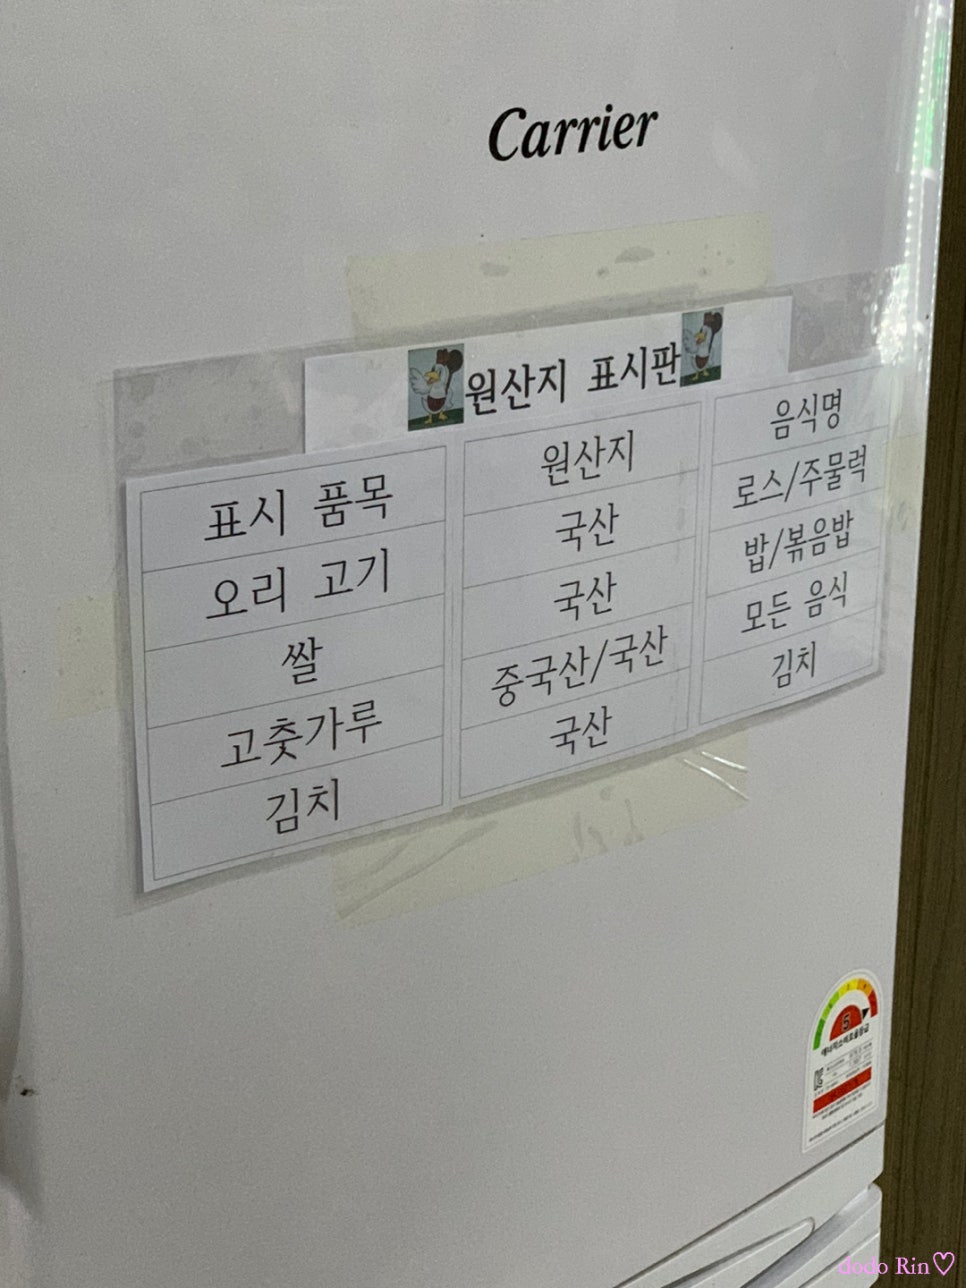 Carrier
원산지 표시판
표시 품목 원산지 음식명
오리 고기 국산 로스/주물럭
쌀 국산 밥/볶음밥
고춧가루 중국산/국산 모든 음식
김치 국산 김치
5
에너지소비효율등급
dodo Rin♡